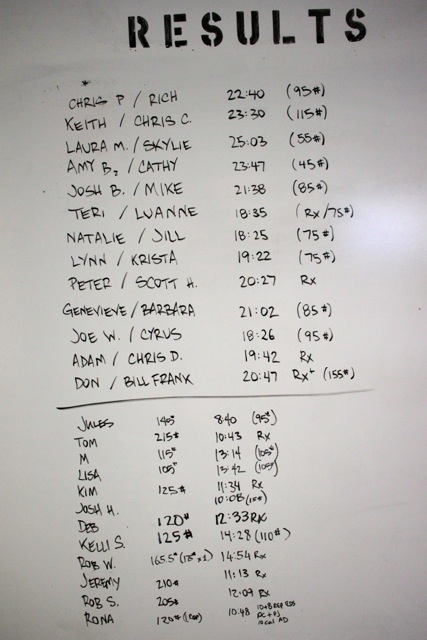 RESULTS
CHRIS P / RICH 22:40 (95#)
KEITH / CHRIS C. 23:30 (115#)
LAURA M. / SKYLIE 25:03 (55#)
AMY B. / CATHY 23:47 (45#)
JOSH B. / MIKE 21:38 (85#)
TERI / LUANNE 18:35 (Rx/75#)
NATALIE / JILL 18:25 (75#)
LYNN / KRISTA 19:22 (75#)
PETER / SCOTT H. 20:27 Rx
GENEVIEVE / BARBARA 21:02 (85#)
JOE W. / CYRUS 18:26 (95#)
ADAM / CHRIS D. 19:42 Rx
DON / BILL FRANK 20:47 Rx+ (155#)
JULES 145# 8:40 (95#)
TOM 215# 10:43 Rx
M 115# 13:14 (105#)
LISA 105# 13:42 (105#)
KIM 125# 11:34 Rx
JOSH H. 10:08
DEB 120# 12:33 Rx
KELLI S. 125# 14:28 (110#)
ROB W. 165.5# 14:54 Rx
JEREMY 210# 11:13 Rx
ROB S. 205# 12:09 Rx
RONA 120# 10:48